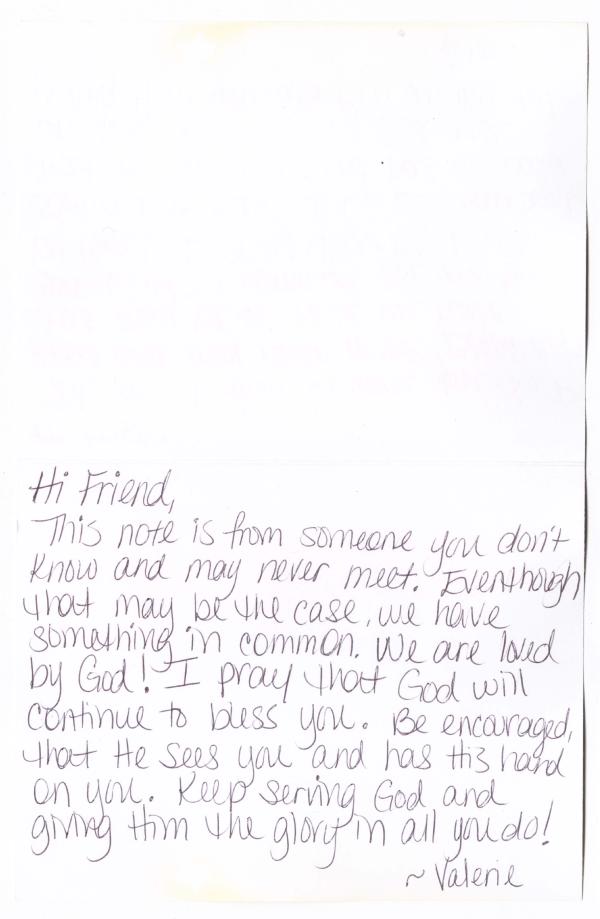 Hi Friend,
This note is from someone you don't
know and may never meet. Eventhough
that may be the case, we have
something in common. We are loved
by God! I pray that God will
continue to bless you. Be encouraged,
that He sees you and has His hand
on you. Keep serving God and
giving Him the glory in all you do!
~ Valerie